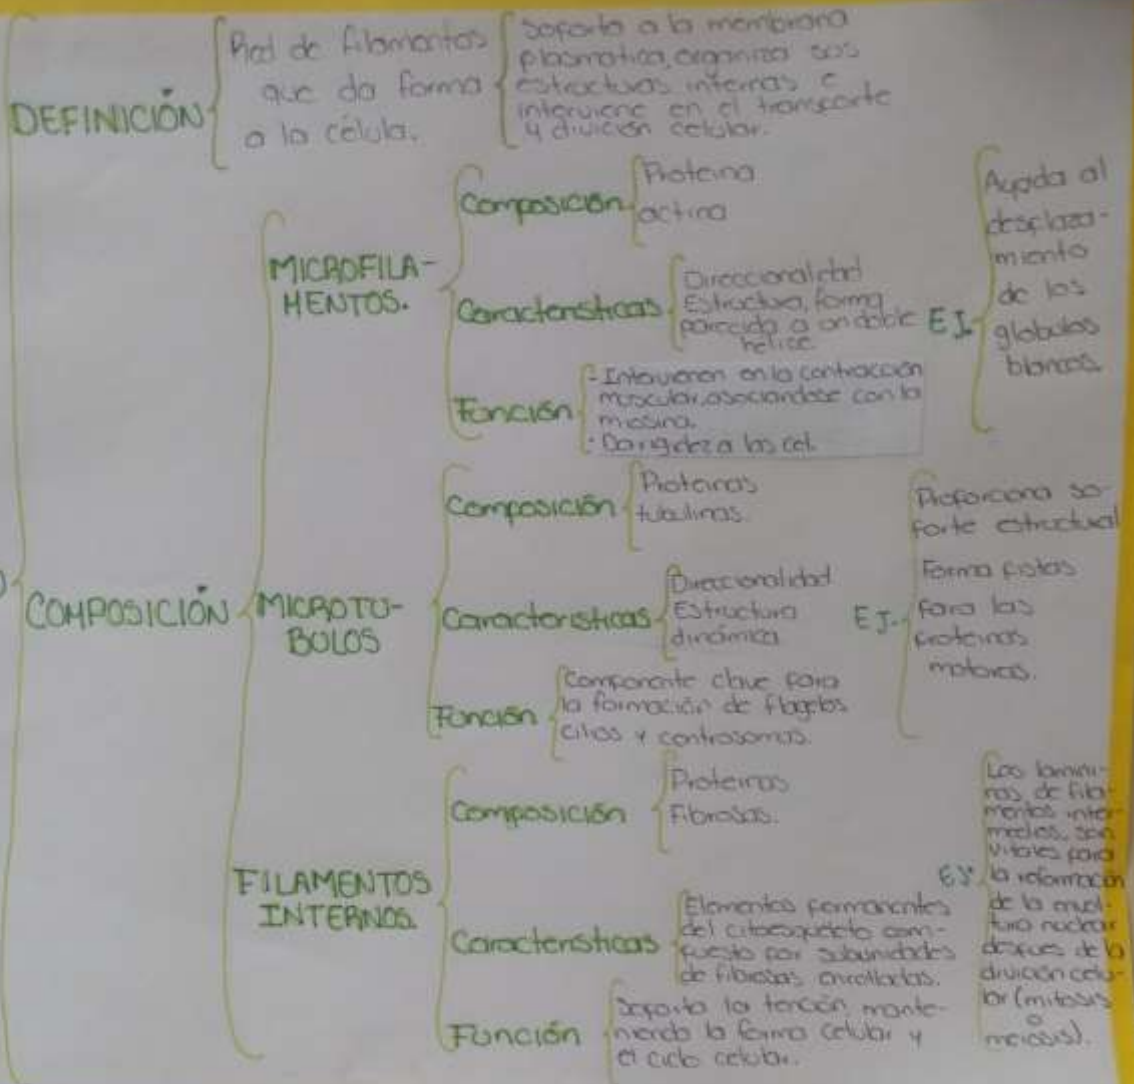 DEFINICIÓN
Red de filamentos
que da forma
a la célula.
Soporta a la membrana
plasmatica, organiza sus
estructuras internas e
interviene en el transporte
y división celular.
COMPOSICIÓN
MICROFILA-
MENTOS.
Composición
Proteina
actina
Caracteristicas
Direccionalidad
Estructura, forma
parecida a un doble
helice
Función
- Intervienen en la contracción
muscular, asociandose con la
miosina.
- Da rigidez a las cel.
EJ.
Ayuda al
desplaza-
miento
de los
globulos
blancos.
MICROTU-
BULOS
Composición
Proteinas
tubulinas.
Caracteristicas
Direccionalidad
Estructura
dinámica
Función
Componente clave para
la formación de flagelos
cilios y centrosomas.
EJ.
Proporciona so-
porte estructual
Forma pistas
para las
proteinas
motoras.
FILAMENTOS
INTERNOS.
Composición
Proteinas
Fibrosas.
Caracteristicas
Elementos permanentes
del citoesqueleto com-
puesto por subunidades
de fibrosas enrolladas.
Función
Soporta la tención mante-
niendo la forma celular y
el ciclo celular.
EJ.
Los
de fila-
mentos inter-
medios, son
vitales para
la reformación
de la envol-
tura nuclear
despues de la
división celu-
lar (mitosis
o
meiosis).